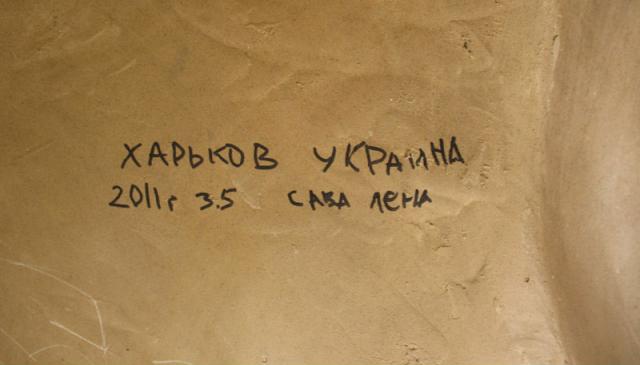 ХАРЬКОВ УКРАИНА
2011г 3.5 САВА ЛЕНА